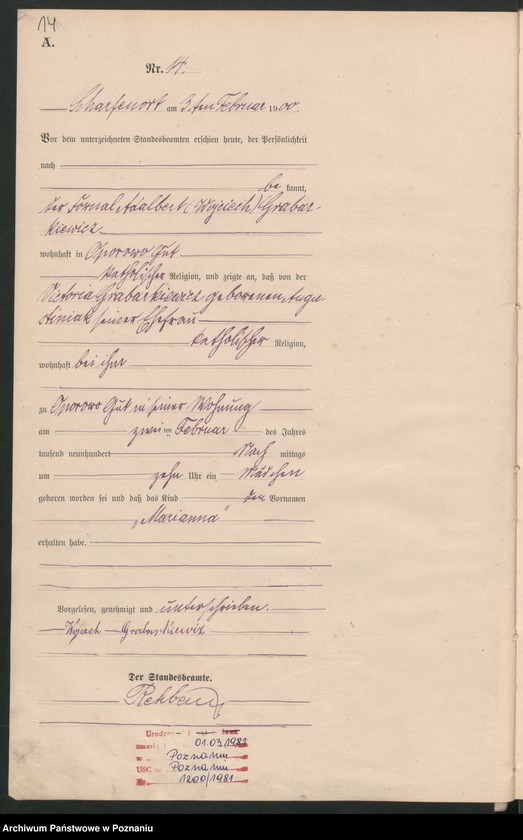 14
A.
Nr. 14.
Scharfenort am 3ten Februar 1900.
Vor dem unterzeichneten Standesbeamten erschien heute, der Persönlichkeit
nach
be kannt,
der Fornal Adalbert (Wojciech) Grabar-
kiewicz
wohnhaft in Oporowo Gut
katholischer Religion, und zeigte an, daß von der
Victoria Grabarkiewicz geborenen Augu-
stiniak seiner Ehefrau
katholischer Religion,
wohnhaft bei ihm
zu Oporowo Gut in seiner Wohnung
am zwei ten Februar des Jahres
tausend neunhundert Nach mittags
um zehn Uhr ein Mädchen
geboren worden sei und daß das Kind den Vornamen
„Marianna"
erhalten habe.
Vorgelesen, genehmigt und unterschrieben.
Grabarkiewicz
Der Standesbeamte.
01.03.1981
w Poznaniu
USC Poznaniu
Nr 1200/1981
Archiwum Państwowe w Poznaniu